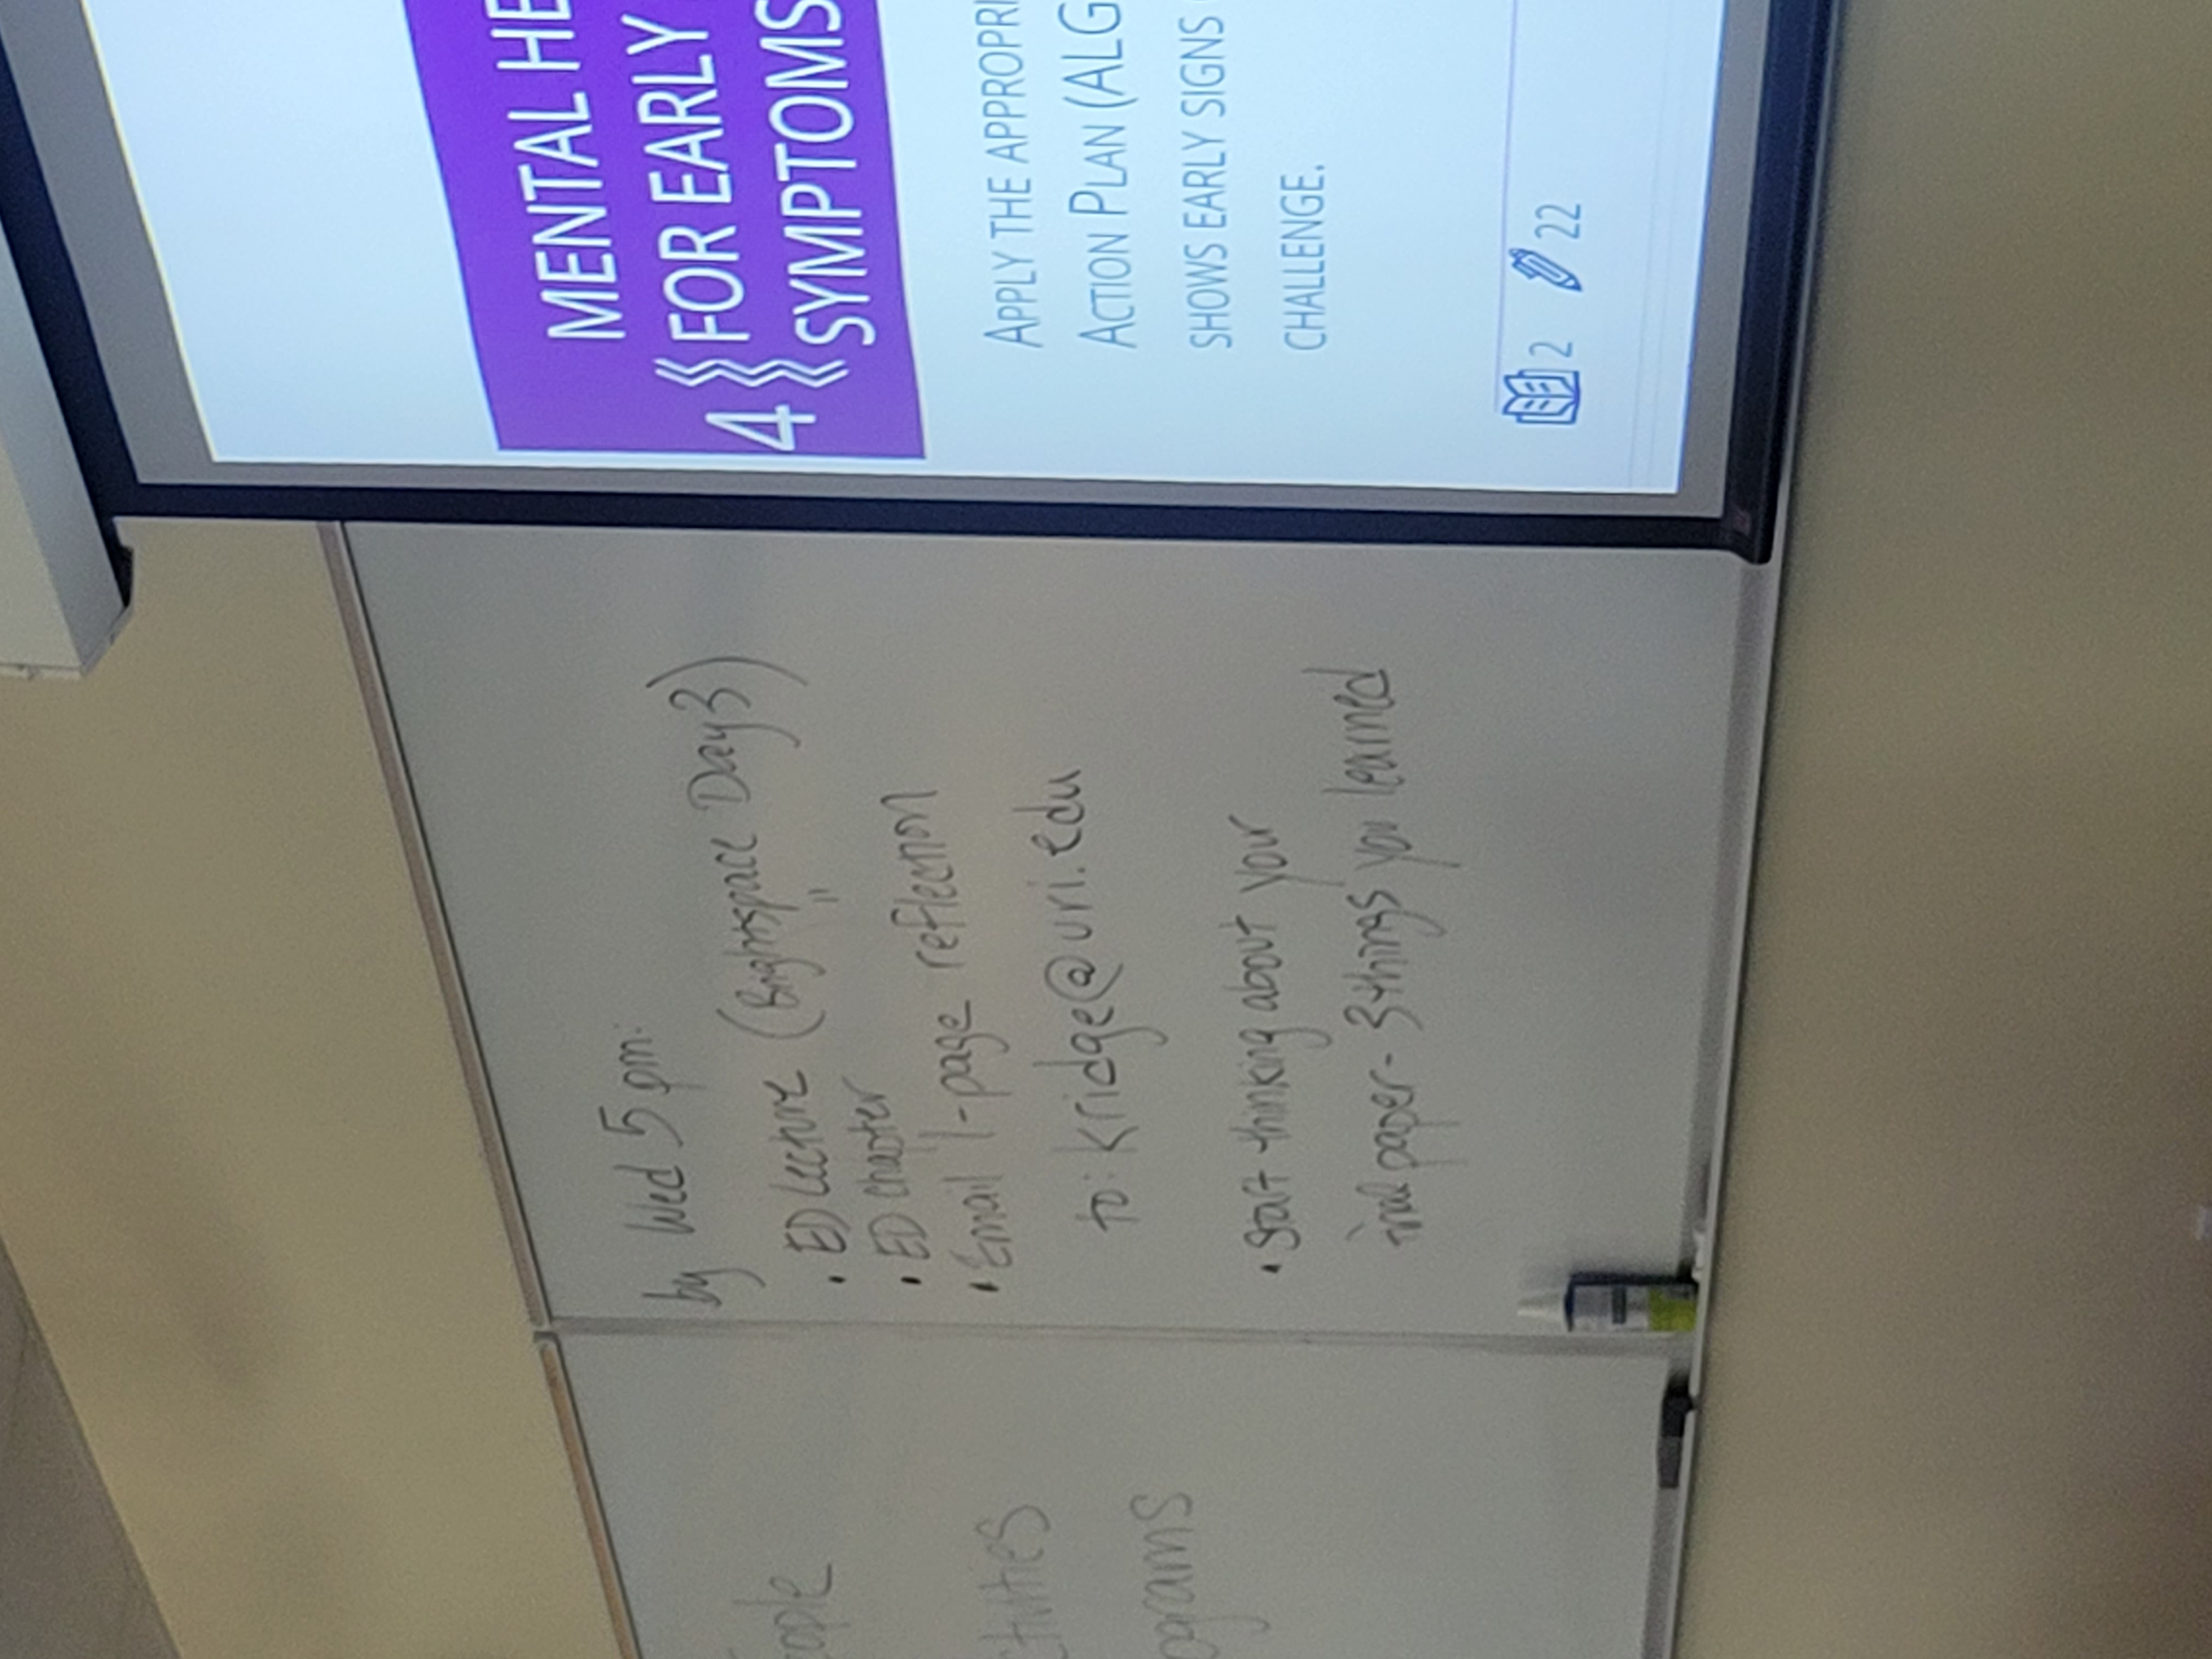 ople
ctivities
ograms
by Wed 5 pm:
• ED Lecture (Brightspace Day 3)
• ED Chapter "
• Email 1-page reflection
to: kridge@uri.edu
• Start thinking about your
final paper - 3 things you learned
4
MENTAL HE
FOR EARLY
SYMPTOMS
APPLY THE APPROPRI
ACTION PLAN (ALG
SHOWS EARLY SIGNS
CHALLENGE.
2 22